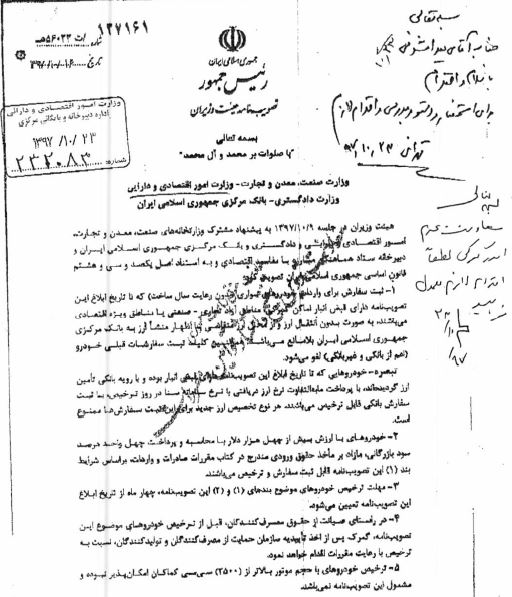 ۱۲۷۱۶۱/ت۵۶۰۳۳هـ
شماره
تاریخ ۱۳۹۷/۱۰/۱۶
جمهوری اسلامی ایران
رئیس جمهور
تصویب نامه هیئت وزیران
بسمه تعالی
"با صلوات بر محمد و آل محمد"
وزارت امور اقتصادی و دارائی
اداره دبیرخانه و بایگانی مرکزی
۱۳۹۷/۱۰/۲۳
شماره: ۲۳۲۰۸۲
بسمه تعالی
جناب آقای
وزارت صنعت، معدن و تجارت - وزارت امور اقتصادی و دارایی
وزارت دادگستری - بانک مرکزی جمهوری اسلامی ایران
هیئت وزیران در جلسه ۱۳۹۷/۱۰/۹ به پیشنهاد مشترک وزارتخانه‌های صنعت، معدن و تجارت،
امور اقتصادی و دارایی و دادگستری و بانک مرکزی جمهوری اسلامی ایران و
دبیرخانه ستاد هماهنگی مبارزه با مفاسد اقتصادی و به استناد اصل یکصد و سی و هشتم
قانون اساسی جمهوری اسلامی ایران تصویب کرد:
۱- ثبت سفارش برای واردات خودروهای سواری (بدون رعایت سال ساخت) که تا تاریخ ابلاغ این
تصویب‌نامه دارای قبض انبار اماکن گمرکی، مناطق آزاد تجاری - صنعتی یا مناطق ویژه اقتصادی
می‌باشند، به صورت بدون انتقال ارز و از محل ارز متقاضی با اظهار منشأ ارز به بانک مرکزی
جمهوری اسلامی ایران بلامانع می‌باشد. همچنین کلیه ثبت سفارشات قبلی خودرو
(اعم از بانکی و غیربانکی) لغو می‌شود.
تبصره- خودروهایی که تا تاریخ ابلاغ این تصویب‌نامه دارای قبض انبار بوده و با رویه بانکی تأمین
ارز گردیده‌اند، با پرداخت مابه‌التفاوت نرخ ارز دریافتی با نرخ سامانه سنا در روز ترخیص، با ثبت
سفارش بانکی قابل ترخیص می‌باشند. هر نوع تخصیص ارز جدید برای این ثبت سفارش‌ها ممنوع
است.
۲- خودروهای با ارزش بیش از چهل هزار دلار با محاسبه و پرداخت چهل واحد درصد
سود بازرگانی، مازاد بر مأخذ حقوق ورودی مندرج در کتاب مقررات صادرات و واردات، براساس شرایط
بند (۱) این تصویب‌نامه قابل ثبت سفارش و ترخیص می‌باشند.
۳- مهلت ترخیص خودروهای موضوع بندهای (۱) و (۲) این تصویب‌نامه، چهار ماه از تاریخ ابلاغ
این تصویب‌نامه تعیین می‌شود.
۴- در راستای صیانت از حقوق مصرف‌کنندگان، قبل از ترخیص خودروهای موضوع این
تصویب‌نامه، گمرک پس از اخذ تأییدیه سازمان حمایت از مصرف‌کنندگان و تولیدکنندگان، نسبت به
ترخیص با رعایت مقررات اقدام خواهد نمود.
۵- ترخیص خودروهای با حجم موتور بالاتر از (۲۵۰۰) سی‌سی کماکان امکان‌پذیر نبوده و
مشمول این تصویب‌نامه نمی‌باشند.